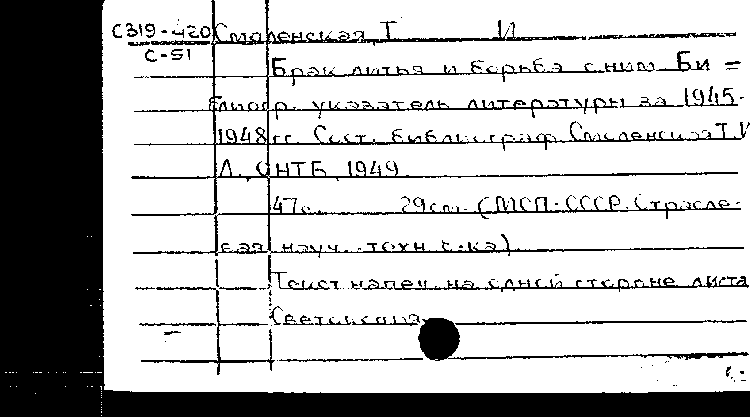 С319-420 Смоленская Т И
С-51
Брак литья и борьба с ним Би =
блиогр. указатель литературы за 1945-
1948 гг. Сост. библиограф Смоленская Т.И
Л., ОНТБ, 1949.
47с. 29см. (МСП. СССР. Отрасле-
вая науч. техн б-ка).
Текст напеч. на одной стороне листа
Светокопия